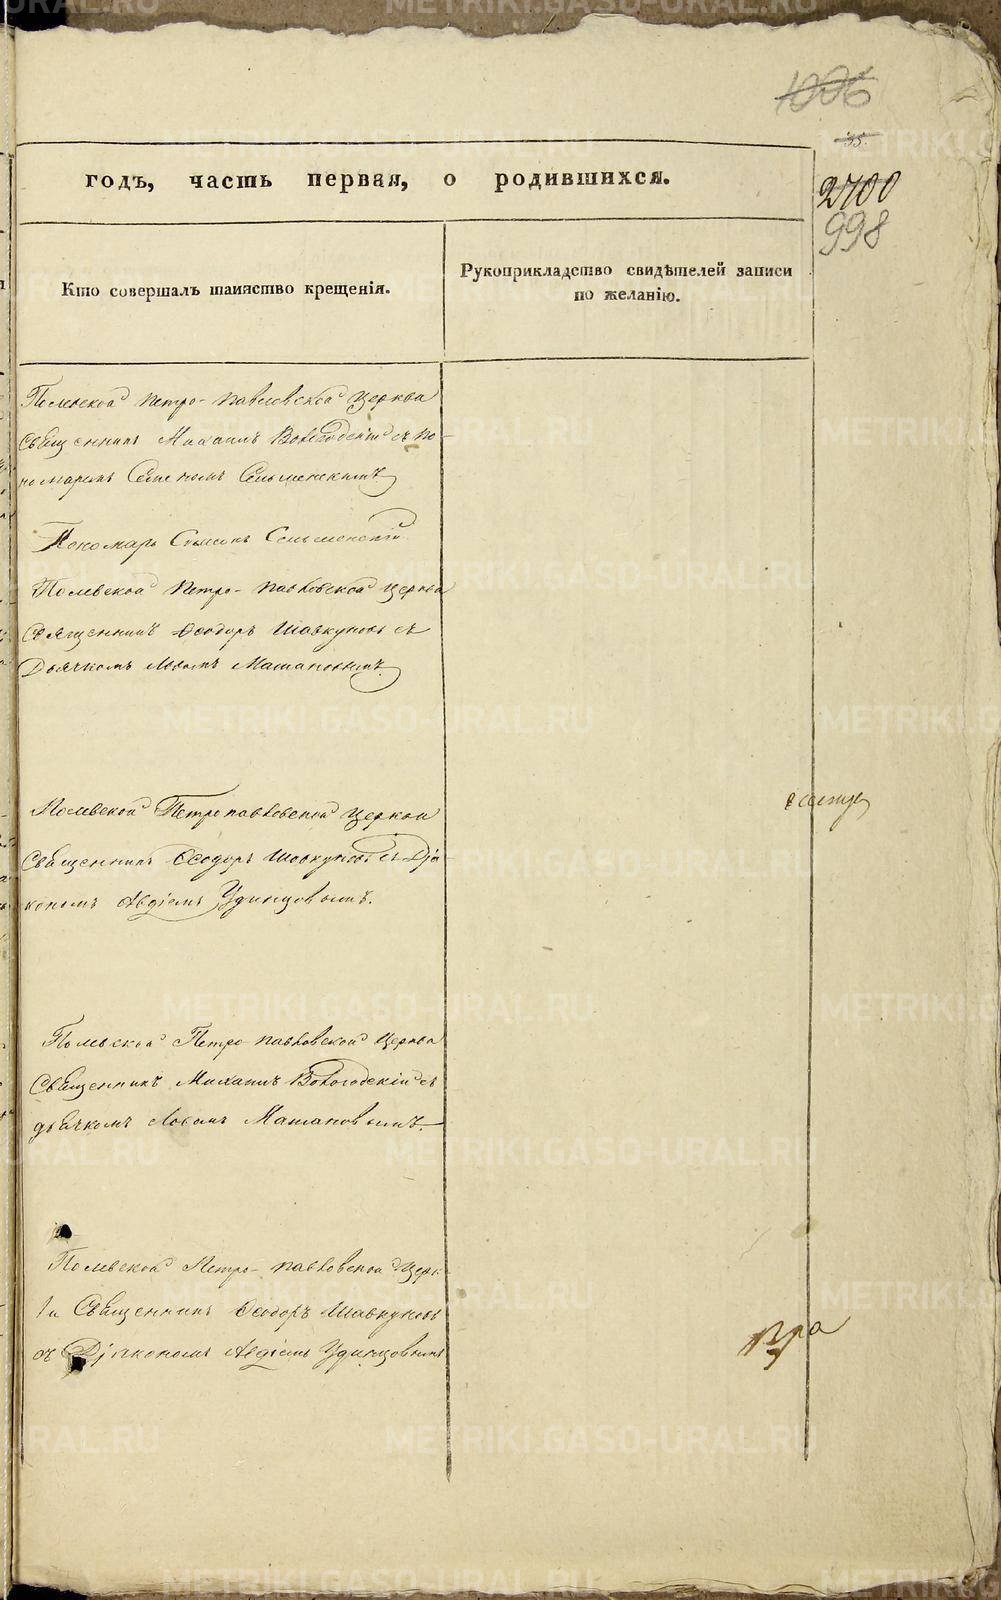 1006
35.
годъ, часть первая, о родившихся.
2700
998
Кто совершалъ таинство крещенія.
Рукоприкладство свидѣтелей записи
по желанію.
Полевской Петро-Павловской Церкви
Священникъ Михаилъ Вологодскій съ по-
номаремъ Семеномъ Сельменскимъ
Пономарь Симеонъ Сельменскій
Полевской Петро-Павловской Церкви
Священникъ Ѳеодоръ Шавкуновъ съ
Дьячкомъ Львомъ Мамановымъ.
Полевской Петропавловской Церкви
Священникъ Ѳеодоръ Шавкуновъ съ Діа-
кономъ Авдіемъ Удинцовымъ.
Полевской Петро-павловской Церкви
Священникъ Михаилъ Вологодскій съ
дьячкомъ Львомъ Мамановымъ.
Полевской Петро-павловской Церк-
ви Священникъ Ѳеодоръ Шавкуновъ
съ Діакономъ Авдіемъ Удинцовымъ
METRIKI.GASO-URAL.RU